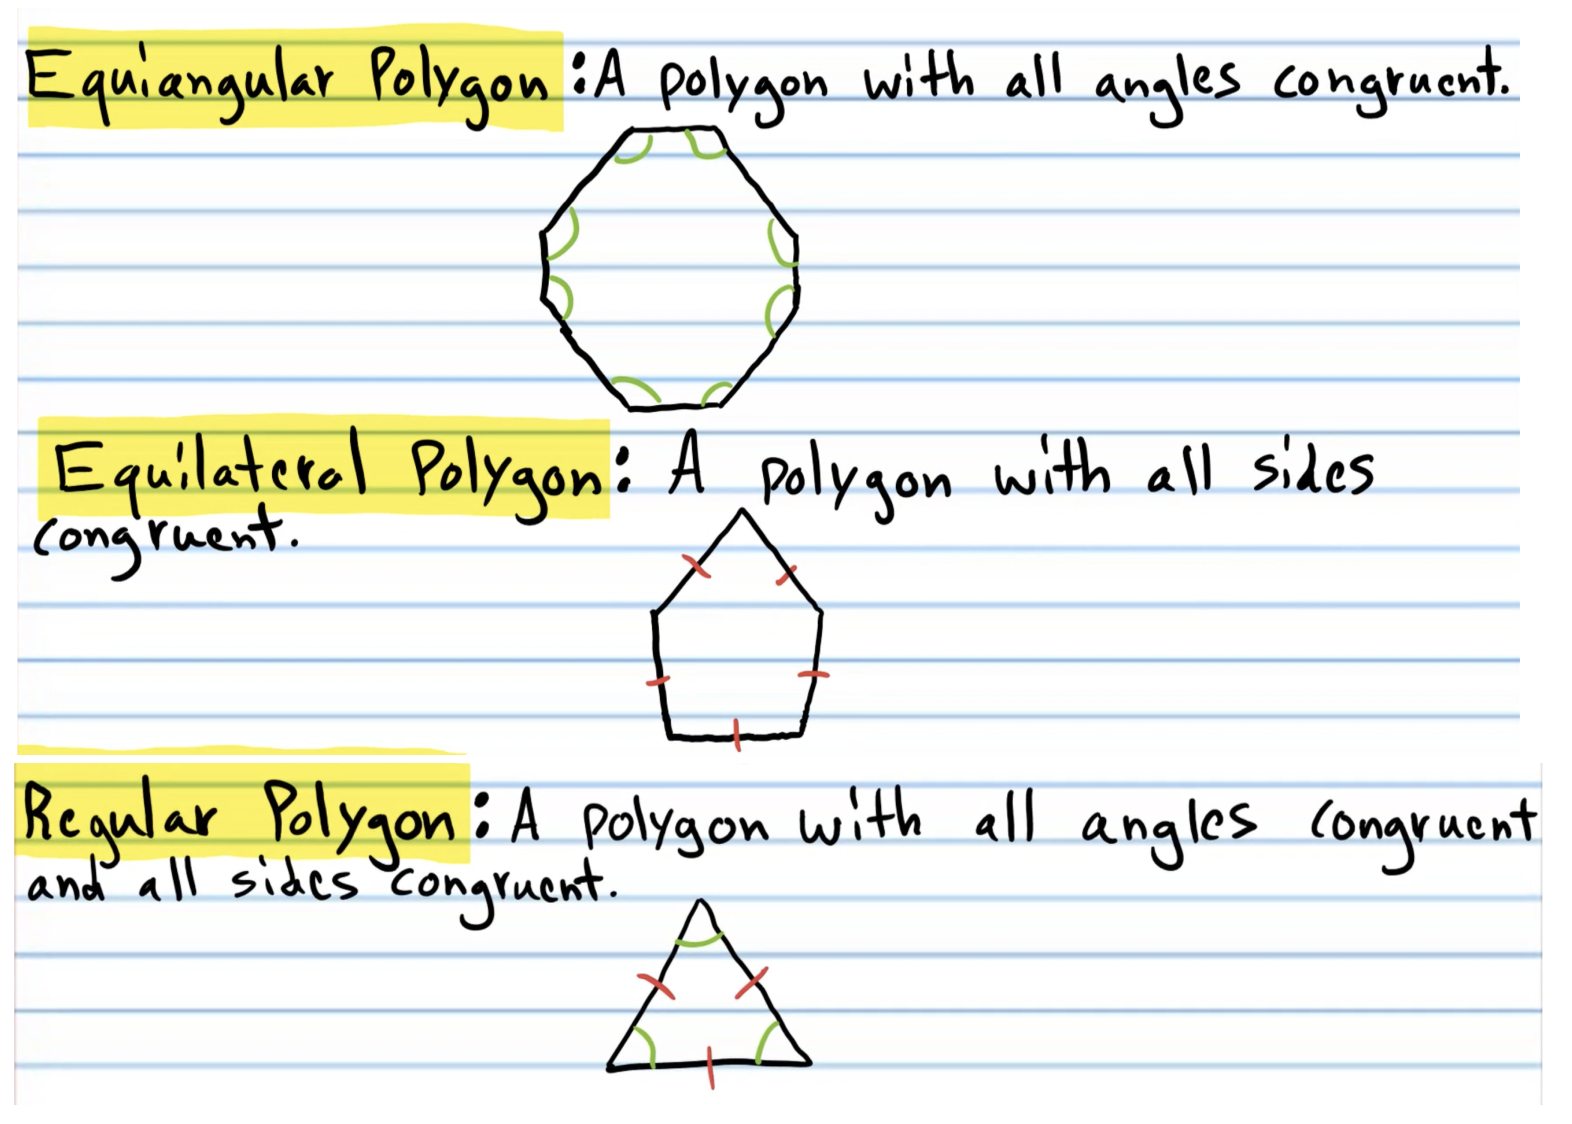 Equiangular Polygon: A polygon with all angles congruent.
Equilateral Polygon: A polygon with all sides
congruent.
Regular Polygon: A polygon with all angles congruent
and all sides congruent.